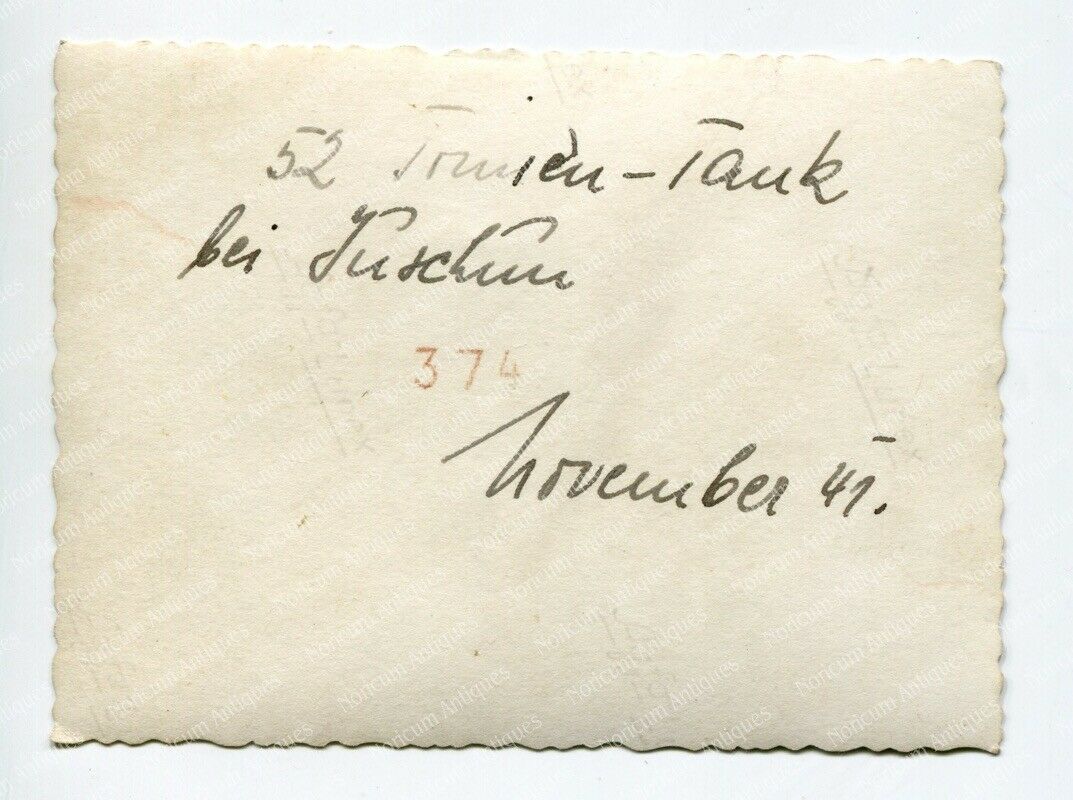 52 Tonnen-Tank
bei Juschun
374
November 41.